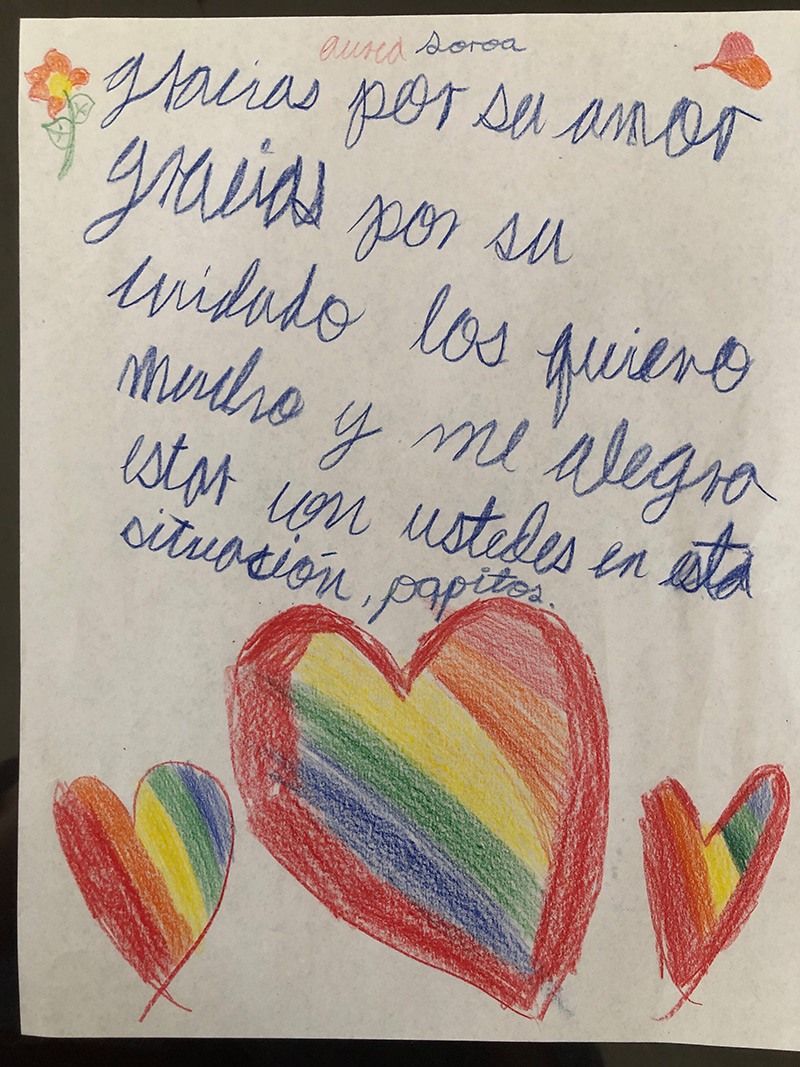 aurea soroa
gracias por su amor
gracias por su
cuidado los quiero
mucho y me alegra
estar con ustedes en esta
situación, papitos.